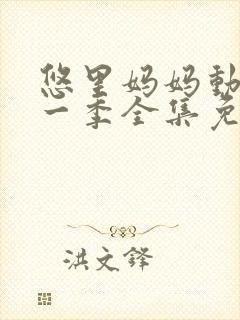 悠里妈妈動
一季全集免
洪文鋒